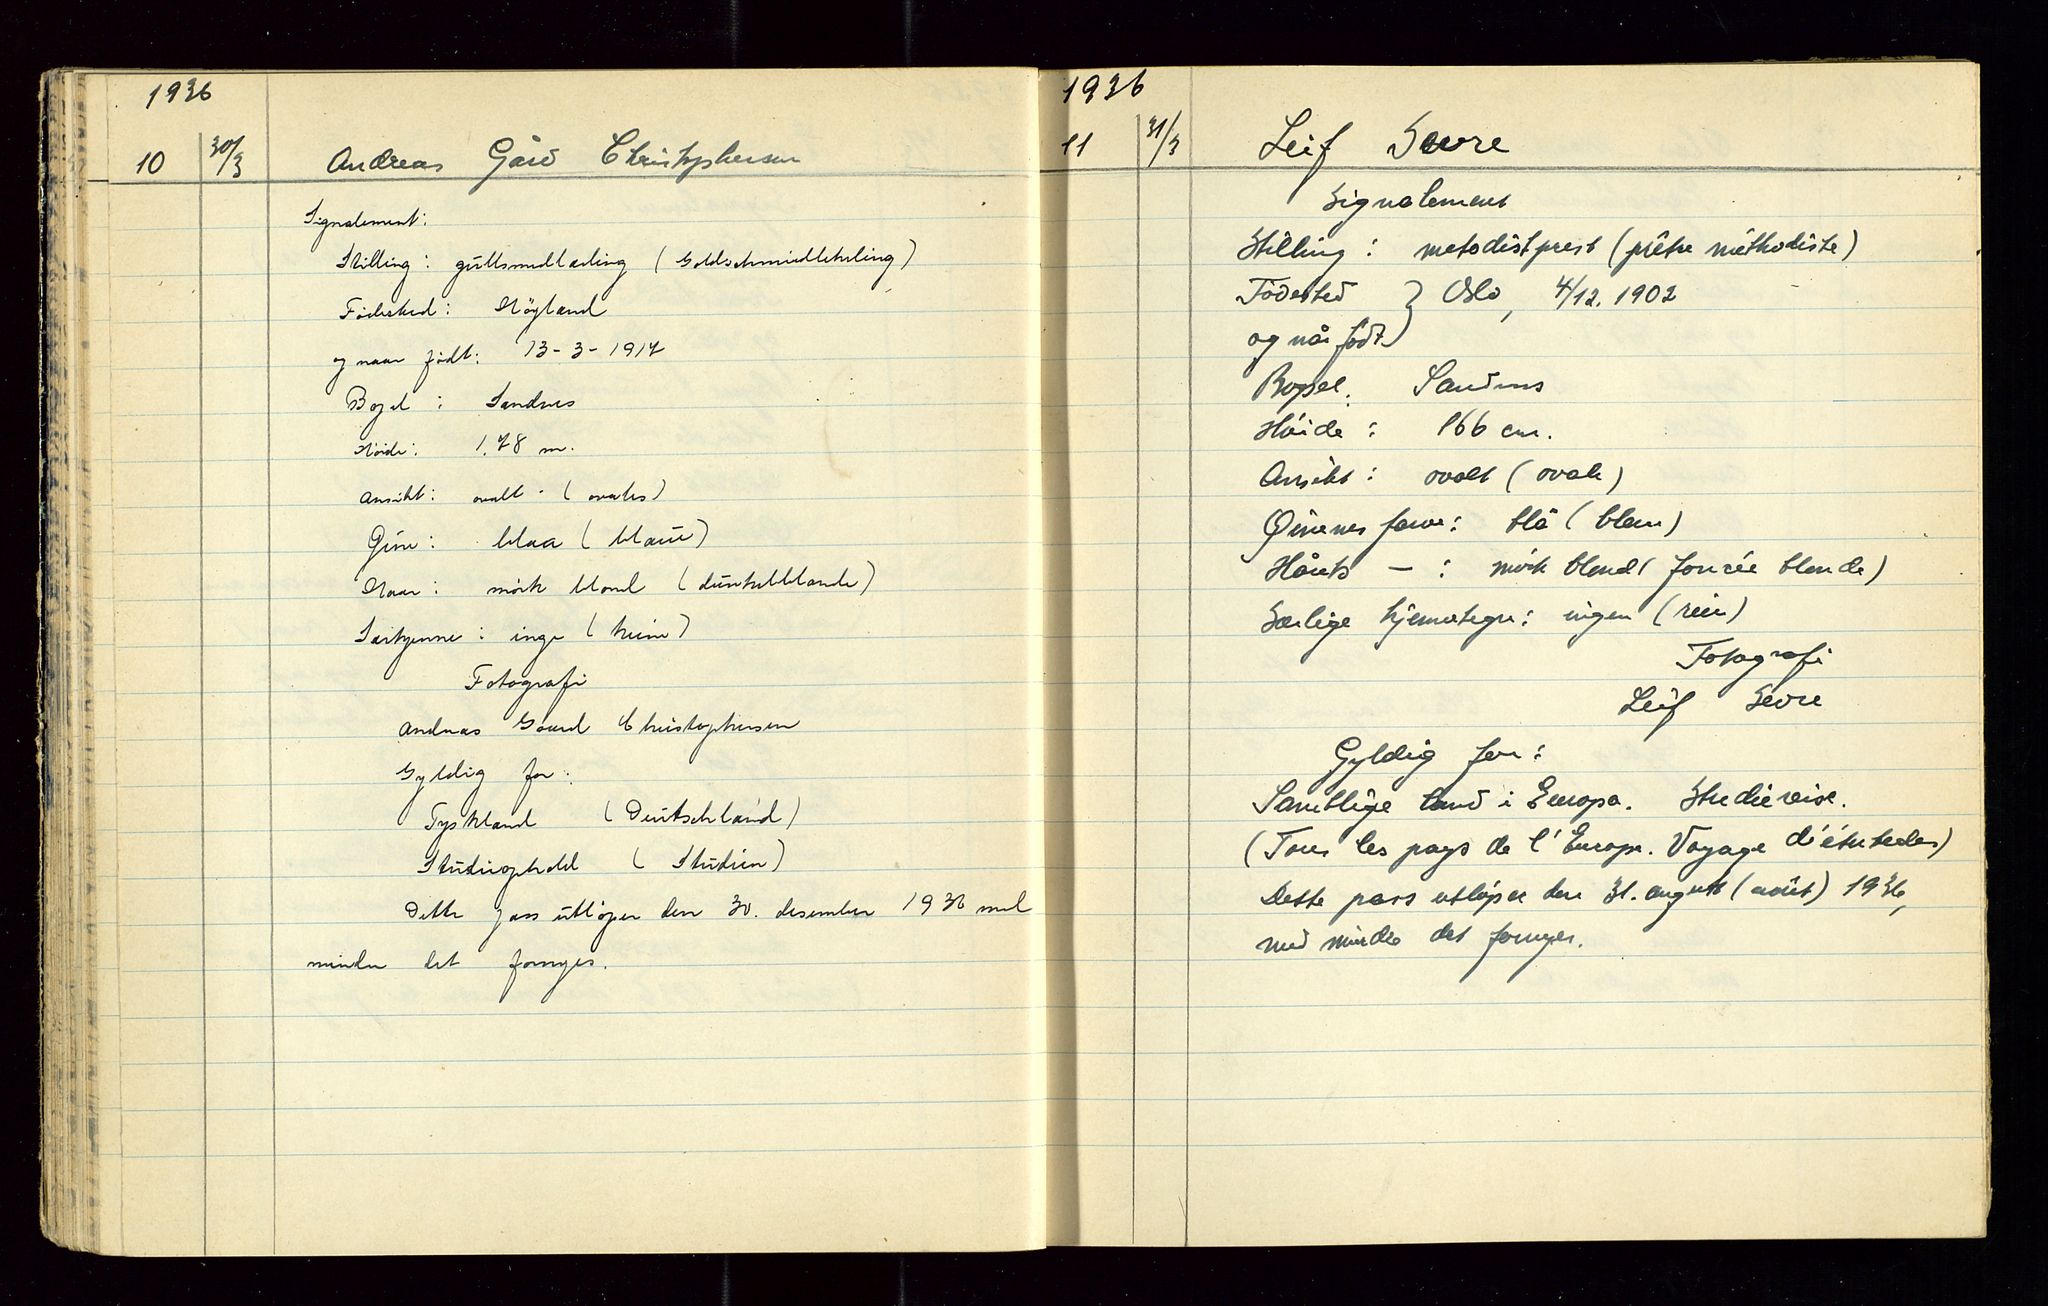 1936
10 30/3 Andreas Gård Christophersen
Signalement:
Stilling: gullsmedlærling (Goldschmiedlehrling)
Fødested: Høyland
og naar født: 13-3-1917
Bopel: Sandnes
Høide: 1,78 m.
Ansikt: ovalt (ovales)
Øine: blaa (blaue)
Haar: mörk blond (dunkelblonde)
Særkjenne: inge (keine)
Fotografi
Andreas Gaard Christophersen
Gyldig for:
Tyskland (Deutschland)
Studieophold (Studien)
Dette pass utlöper den 30. desember 1936 med
mindre det fornyes.
1936
11 31/3 Leif Sevre
Signalement
Stilling: metodistprest (prêtre méthodiste)
Fødested } Oslo, 4/12. 1902
og når født
Bopel: Sandnes
Høide: 166 cm.
Ansikt: ovalt (ovale)
Øinenes farve: blå (bleu)
Hårets — : mörk blond (foncée blonde)
Særlige kjennetegn: ingen (rien)
Fotografi
Leif Sevre
Gyldig for:
Samtlige land i Europa. Studiereise.
(Tous les pays de l'Europe. Voyage d'étudedes)
Dette pass utløper den 31. august (août) 1936,
med mindre det fornyes.